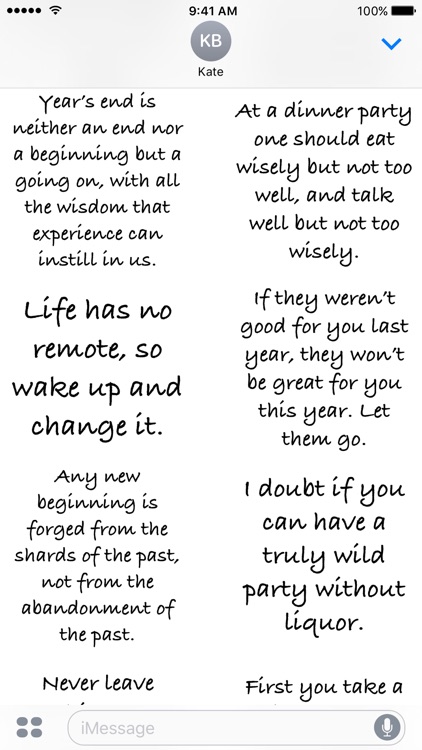 9:41 AM
100%
KB
Kate
Year's end is
neither an end nor
a beginning but a
going on, with all
the wisdom that
experience can
instill in us.
At a dinner party
one should eat
wisely but not too
well, and talk
well but not too
wisely.
Life has no
remote, so
wake up and
change it.
If they weren't
good for you last
year, they won't
be great for you
this year. Let
them go.
Any new
beginning is
forged from the
shards of the past,
not from the
abandonment of
the past.
I doubt if you
can have a
truly wild
party without
liquor.
Never leave
First you take a
iMessage